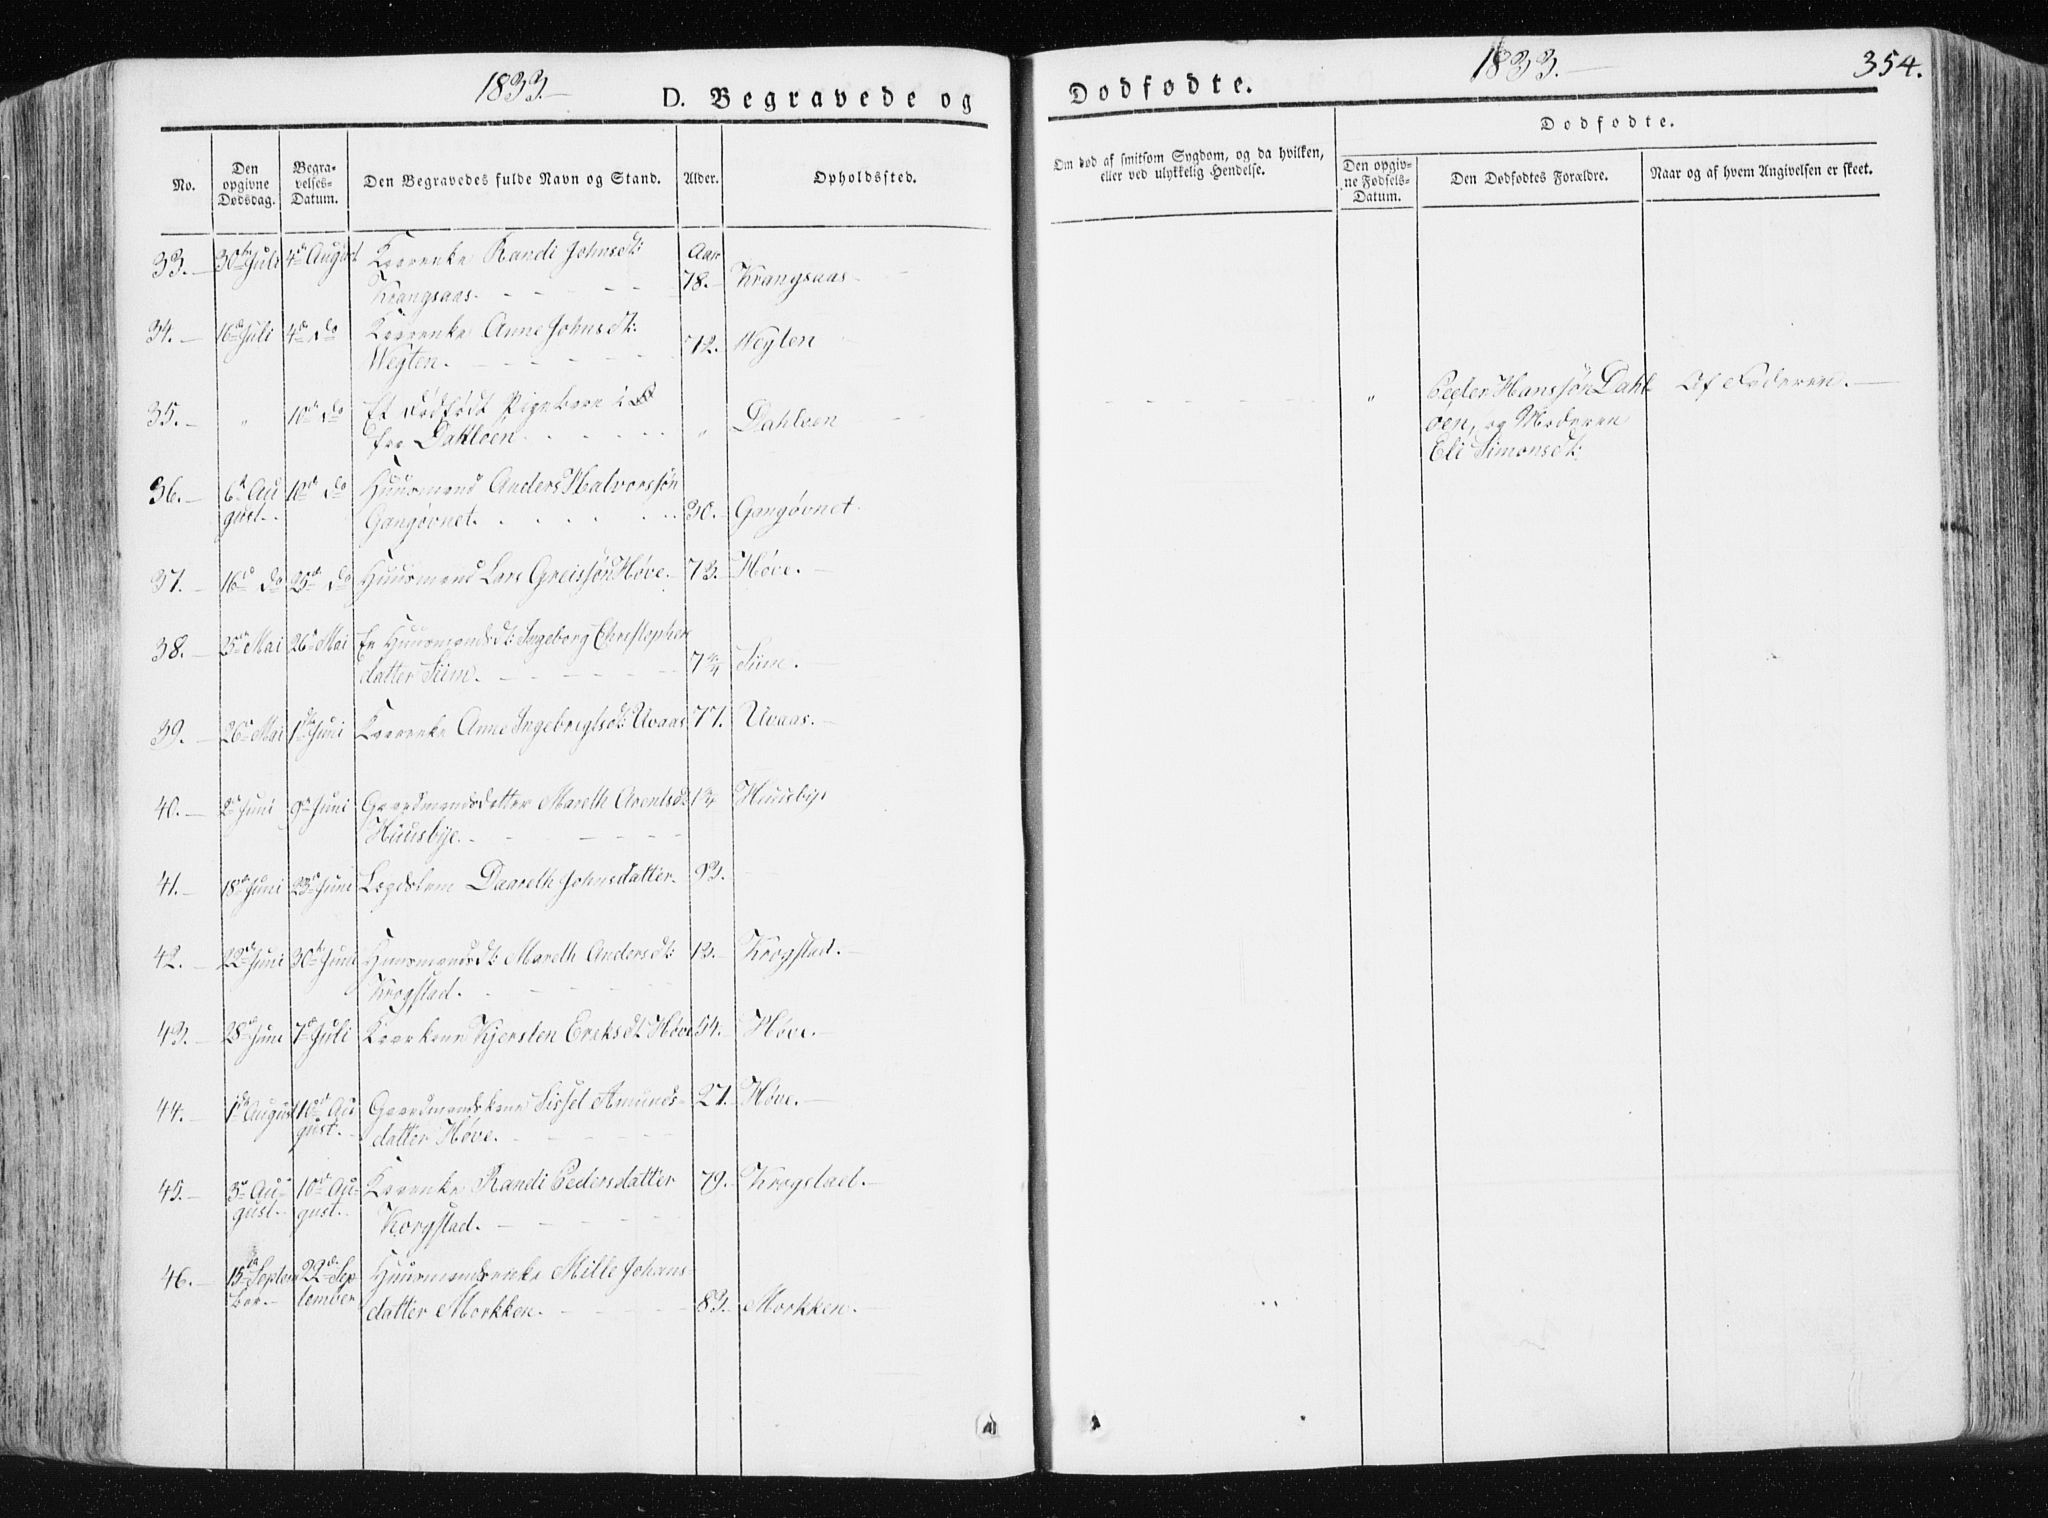 1833.
D. Begravede og
Dodfodte.
1833.
354.
No.
Den opgivne Dodsdag.
Begravelses-Datum.
Den Begravedes fulde Navn og Stand.
Alder.
Opholdssted.
Om dod af smitsom Sygdom, og da hvilken,
eller ved ulykkelig Hendelse.
Dodfodte.
Den opgivne Fodsels-Datum.
Den Dodfodtes Forældre.
Naar og af hvem Angivelsen er skeet.
33. 30te Juli 4de August Randi Johnsdt: Aar
Krangsaas. 78. Krangsaas
34. 16de Juli 4de do Anne Johnsdt:
Weyten. 72. Weyten
35. " 10de do Et dødfødt Pigebarn
fra Dahløen. " Dahløen
" Peder Hanssøn Dahl- Af Faderen.
øen, og Moderen
Eli Simonsdt:
36. 6te Au 10de do Huusmand Anders Halvorssøn
gust. Gangøvnet. 30. Gangøvnet
37. 16de do 25de do Huusmand Lars Greissøn Høve. 73. Høve.
38. 25de Mai 26de Mai En Huusmandsdt: Ingeborg Christopher
datter Siim. 7 Siim.
39. 26de Mai 1de Juni Anne Ingebrigtsdt: Uvaas 77. Uvaas.
40. 2de Juni 9de Juni Gaardmandsdatter Mareth Arentsdt Huusbye
Huusbye.
41. 18de Juni 23de Juni Lægdslem Daareth Johnsdatter 93.
42. 22de Juni 30de Juni Huusmandsdt: Mareth Andersdt: 13. Krogstad.
Krogstad.
43. 28de Juni 7de Juli Kjersten Eriksdt Høve 54. Høve.
44. 1de August 10de Au Gaardmandskone Sissel Amunds- 27. Høve.
gust. datter Høve.
45. 3de Au- 10de Au- Randi Pedersdatter 79. Krogstad.
gust. gust. Korgstad.
46. 15de Septem 22de Sep Huusmandsenke Mille Johans-
ber. tember datter Morkken. 83. Morkken.